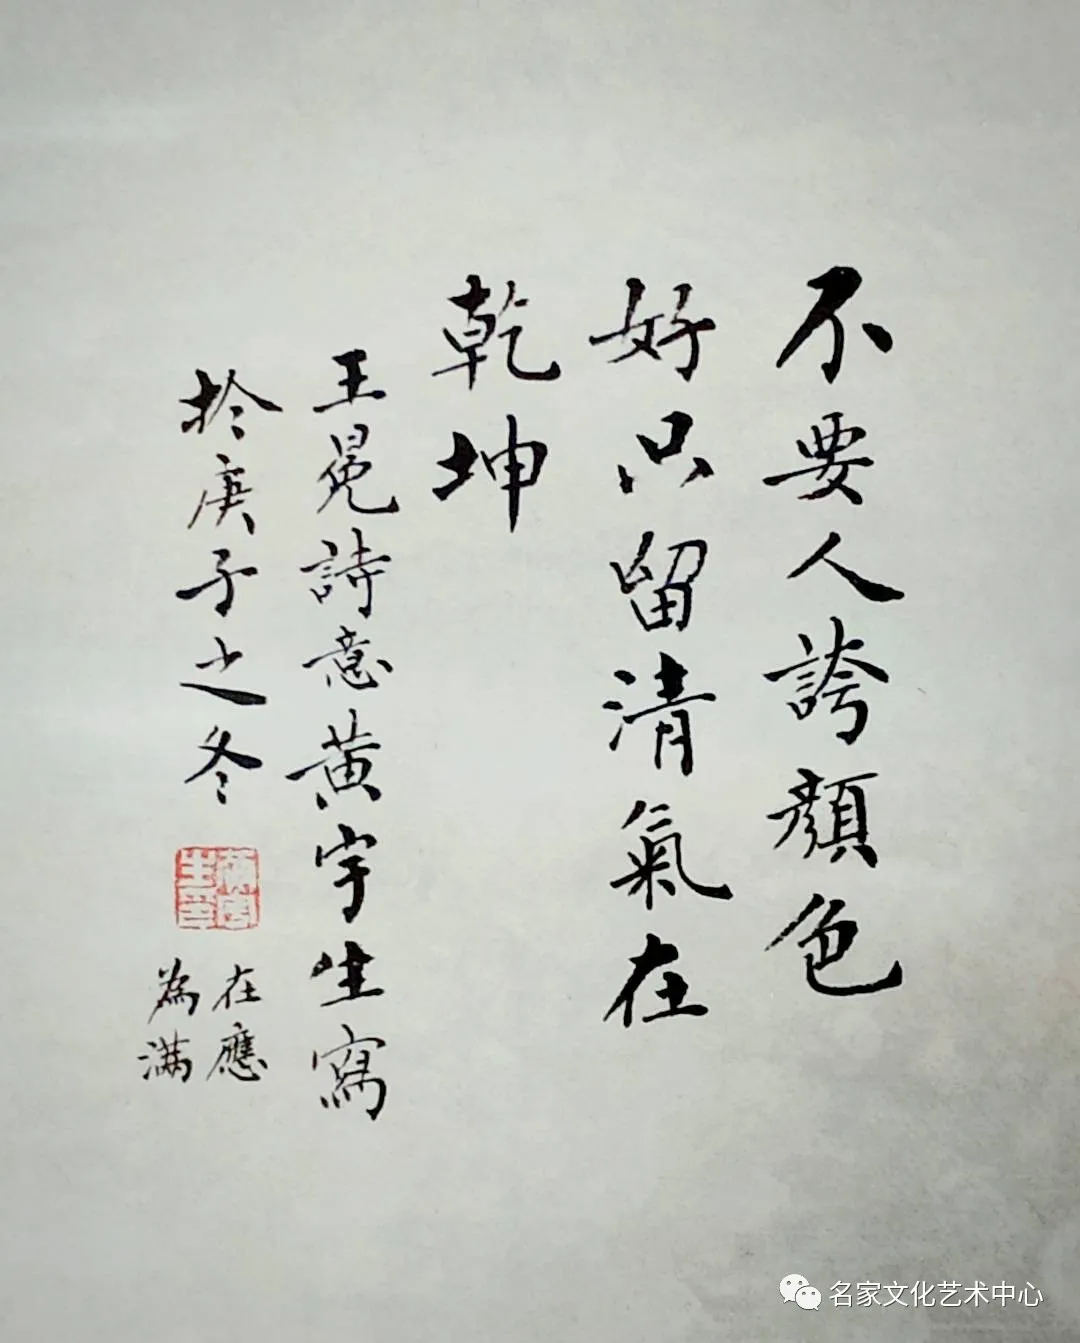 不要人誇顏色
好只留清氣在
乾坤
王冕詩意黃宇生寫
於庚子之冬
在應
為滿
名家文化艺术中心